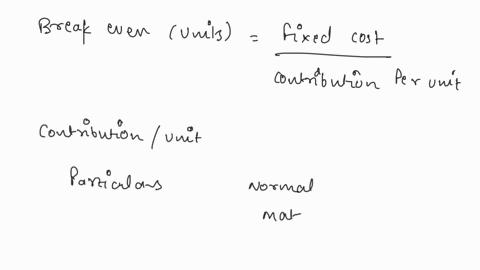 Break even (units) = fixed cost
contribution Per unit
Contribution / unit
Particulars Normal
mat